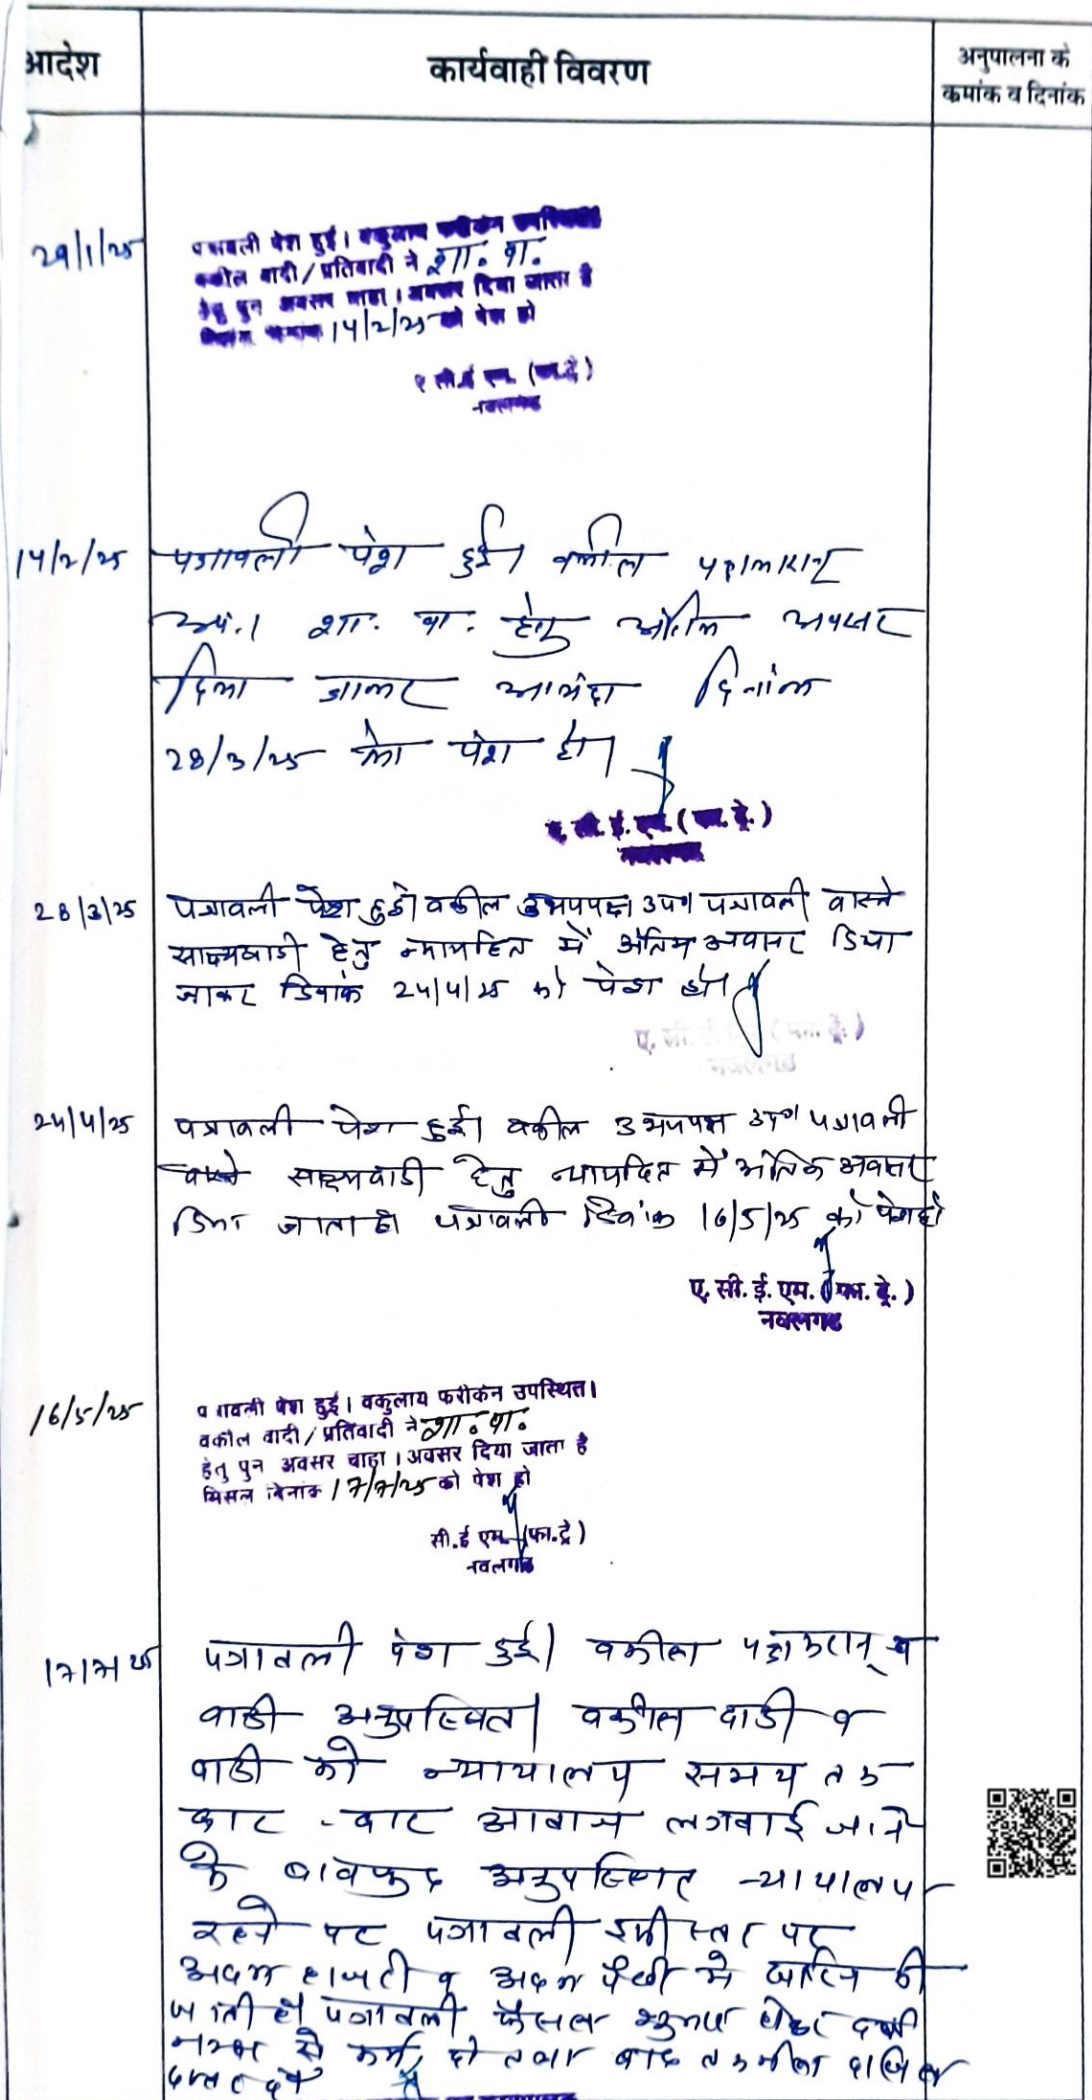 आदेश
कार्यवाही विवरण
अनुपालना के
कमांक व दिनांक
29/1/25
पत्रावली पेश हुई। वकुलाय फरीकेन उपस्थित।
वकील वादी / प्रतिवादी ने शा. वा.
हेतु पुन अवसर चाहा। अवसर दिया जाता है
14/2/25 को पेश हो
ए सी.ई एम. (फा.ट्रे)
नवलगढ
14/2/25
पत्रावली पेश हुई। वकील पक्षकारान्
शा. वा. हेतु अंतिम अवसर
दिया जाकर आयंदा दिनांक
28/3/25 को पेश हो।
ए. सी. ई. एम. (फा. ट्रे.)
नवलगढ
28/3/25
पत्रावली पेश हुई। वकील उभयपक्ष उप० पत्रावली वास्ते
साक्ष्यवादी हेतु न्यायहित में अंतिम अवसर दिया
जाकर दिनांक 24/4/25 को पेश हो।
ए. सी. ई. एम. (फा. ट्रे.)
नवलगढ
24/4/25
पत्रावली पेश हुई। वकील उभयपक्ष उप० पत्रावली
वास्ते साक्ष्यवादी हेतु न्यायहित में अंतिम अवसर
दिया जाता है। पत्रावली दिनांक 16/5/25 को पेश हो
ए. सी. ई. एम. (फा. ट्रे.)
नवलगढ
16/5/25
पत्रावली पेश हुई। वकुलाय फरीकेन उपस्थित।
वकील वादी / प्रतिवादी ने शा. वा.
हेतु पुन अवसर चाहा। अवसर दिया जाता है
मिसल दिनांक 17/7/25 को पेश हो
सी.ई एम. (फा.ट्रे)
नवलगढ
17/7/25
पत्रावली पेश हुई। वकील पक्षकरान् व
वादी अनुपस्थित। वकील वादी व
वादी को न्यायालय समय तक
बार - बार आवाज लगवाई जाने
के बावजुद अनुपस्थित न्यायालय
रहने पर पत्रावली इसी स्तर पर
अदम हाजरी व अदम पैरवी में खारिज की
जाती है। पत्रावली फैसल शुमार होकर दर्ज
नम्बर से कम हो तथा बाद तकमील दाखिल
दफ्तर हो